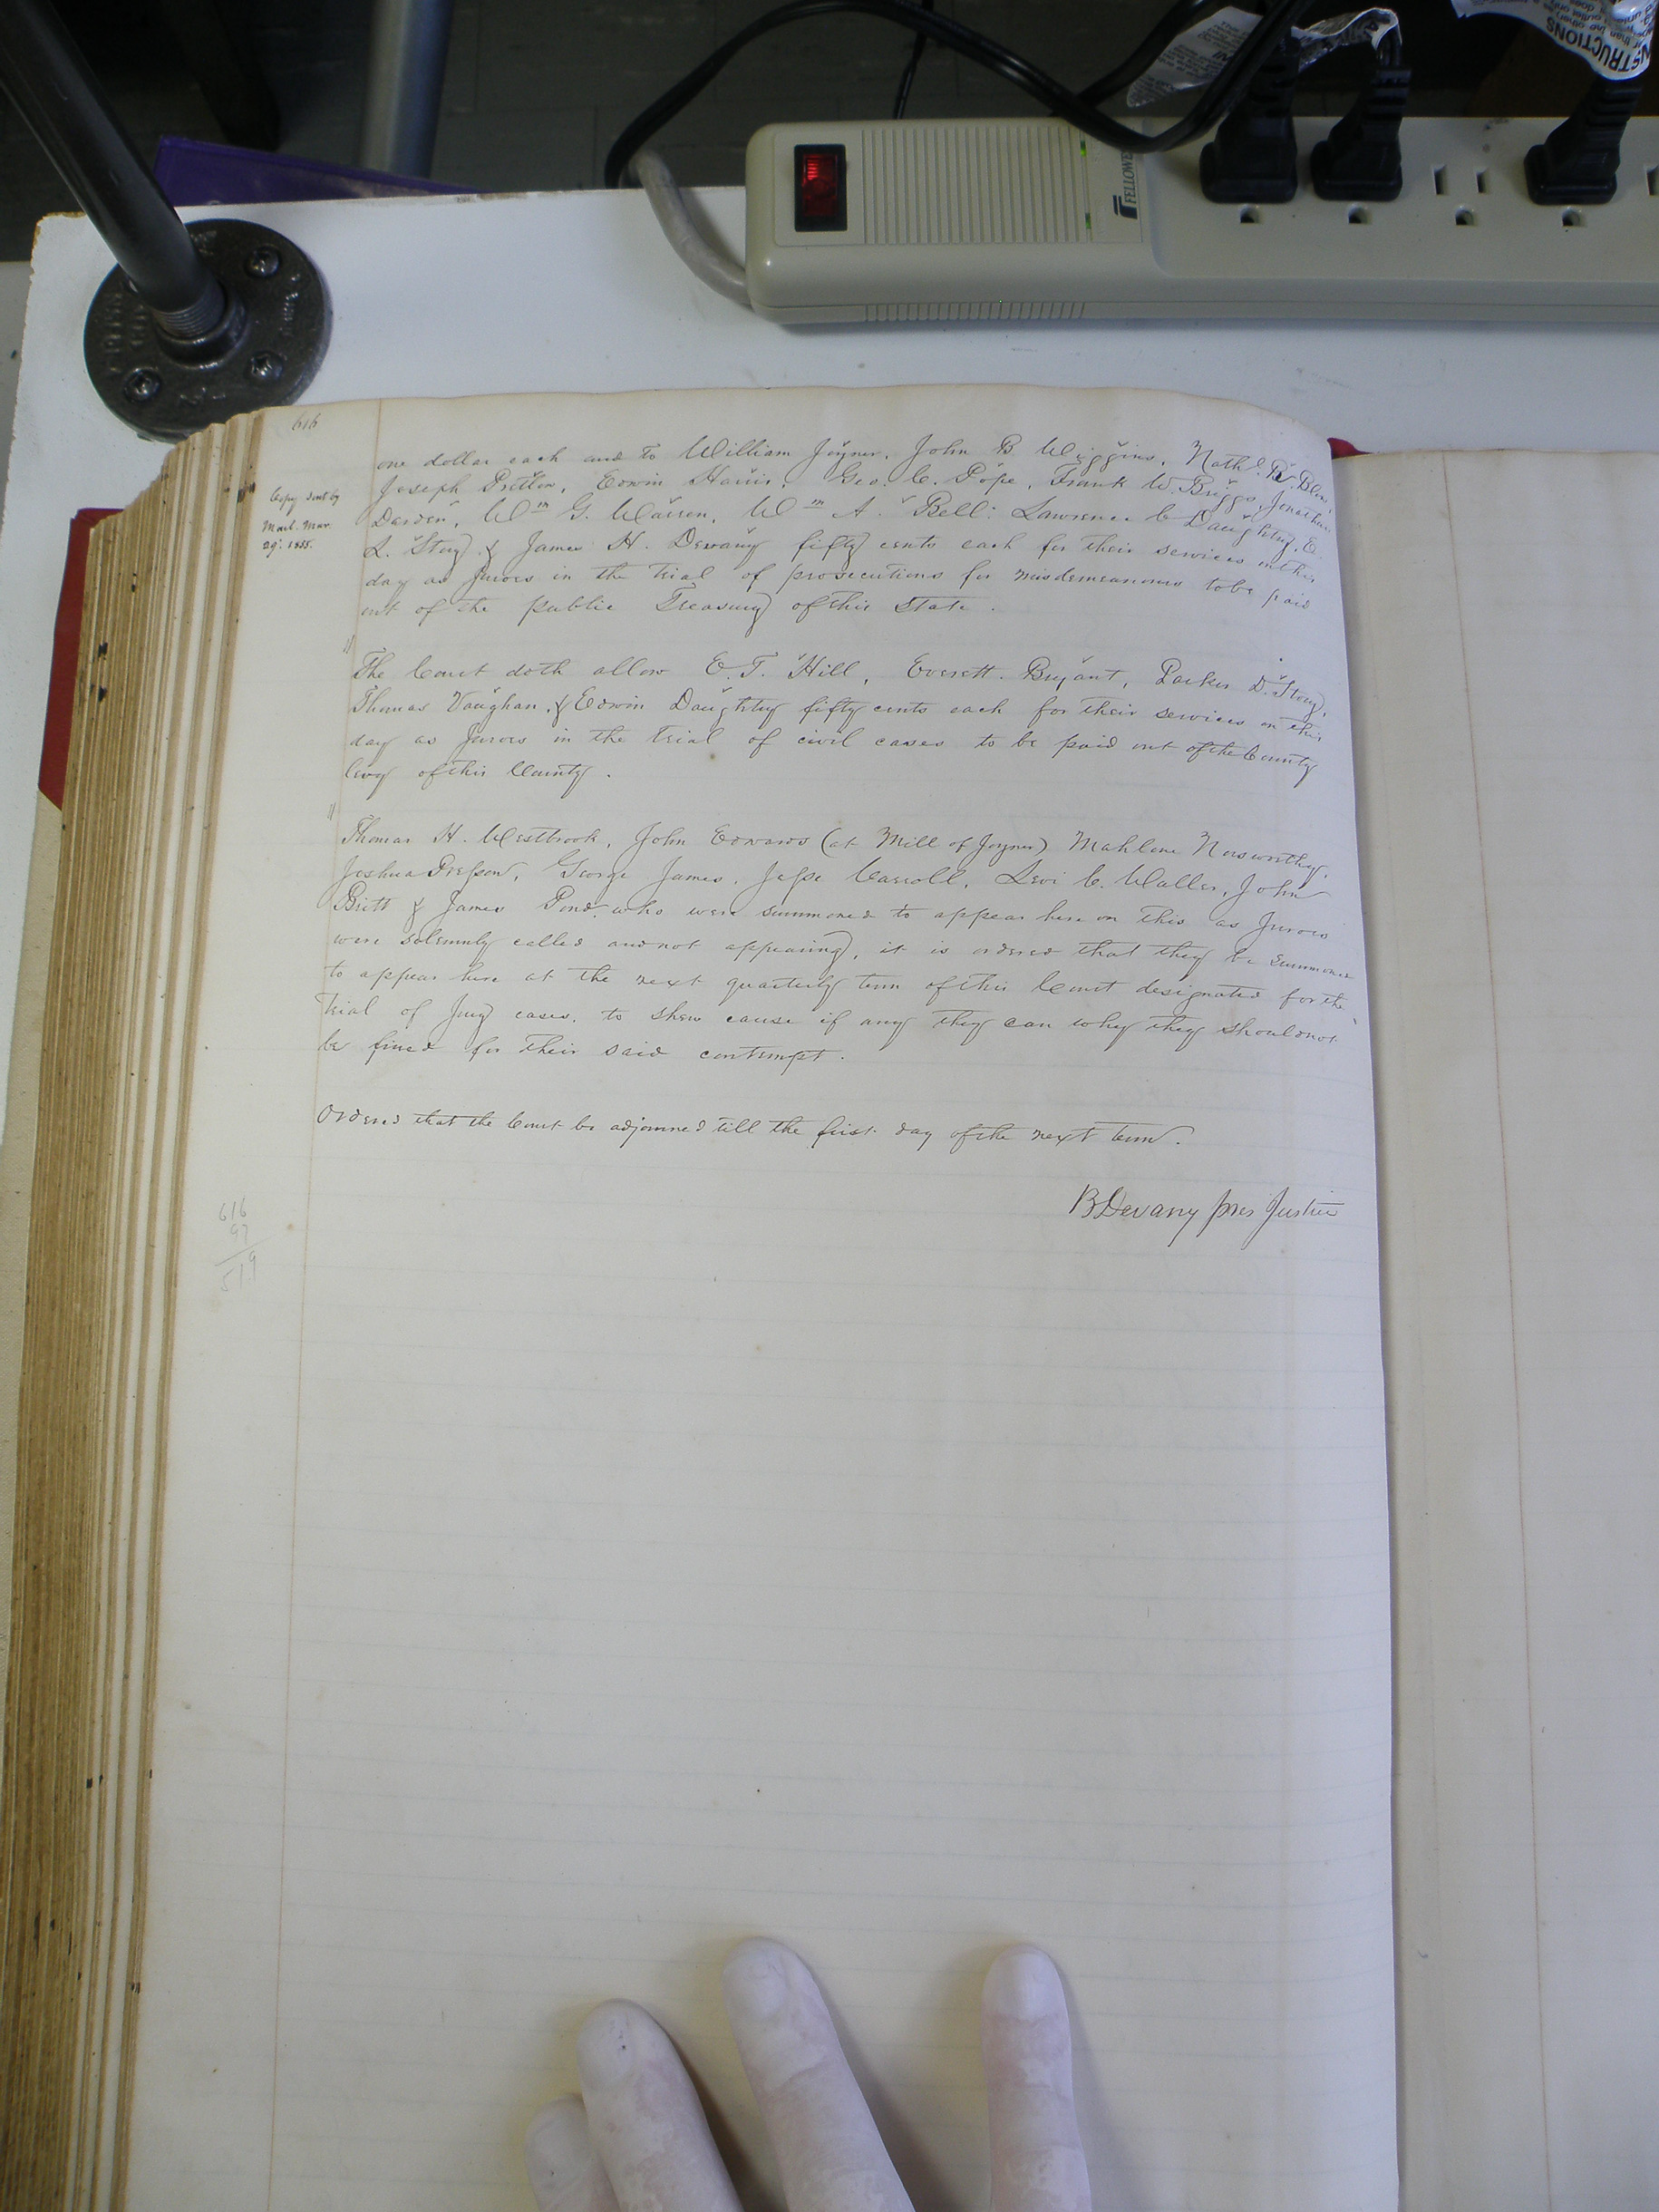 INSTRUCTIONS
FELLOWES
616
one dollar each and to William Joyner, John B. Wiggins, Nathl. B.
Joseph Pretlow, Edwin Harris, Geo. C. Pope, Frank W. Briggs, Jonathan
Copy sent by
Mail. Mar.
29th. 1855.
Darden, Wm G. Warren, Wm A. Bell, Lawrence C Daughtrey, E.
L. Story, & James H. Devany fifty cents each for their services on this
day as Jurors in the trial of prosecutions for misdemeanours to be paid
out of the public Treasury of this State.
"
The Court doth allow E. T. Hill, Everett Bryant, Parker D. Story,
Thomas Vaughan, & Edwin Daughtry fifty cents each for their services on this
day as Jurors in the trial of civil cases to be paid out of the County
levy of this County.
"
Thomas H. Westbrook, John Edwards (at Mill of Joyner) Mahlone Norsworthy,
Joshua Presson, George James, Jesse Carroll, Levi C. Waller, John
Britt & James Pond, who were summoned to appear here on this as Jurors
were solemnly called and not appearing, it is ordered that they be summoned
to appear here at the next quarterly term of this Court designated for the
trial of Jury cases, to shew cause if any they can why they should not
be fined for their said contempt.
Ordered that the Court be adjourned till the first day of the next term.
B Devany pres Justice
616
97
519